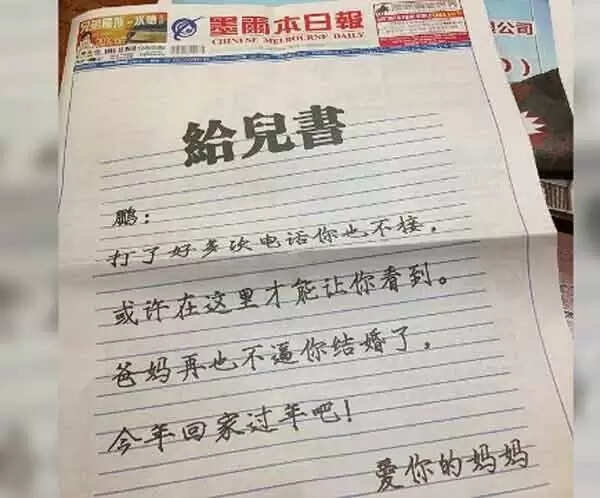 墨爾本日報
CHINESE MELBOURNE DAILY
公司
給兒書
鹏：
打了好多次电话你也不接，
或许在这里才能让你看到。
爸妈再也不逼你结婚了，
今年回家过年吧！
爱你的妈妈